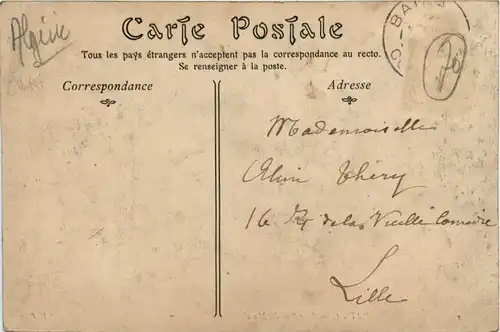 Algérie
Carte Postale
Tous les pays étrangers n'acceptent pas la correspondance au recto.
Se renseigner à la poste.
Correspondance
Adresse
Mademoiselle
Théry
16 de la Vieille Comédie
Lille